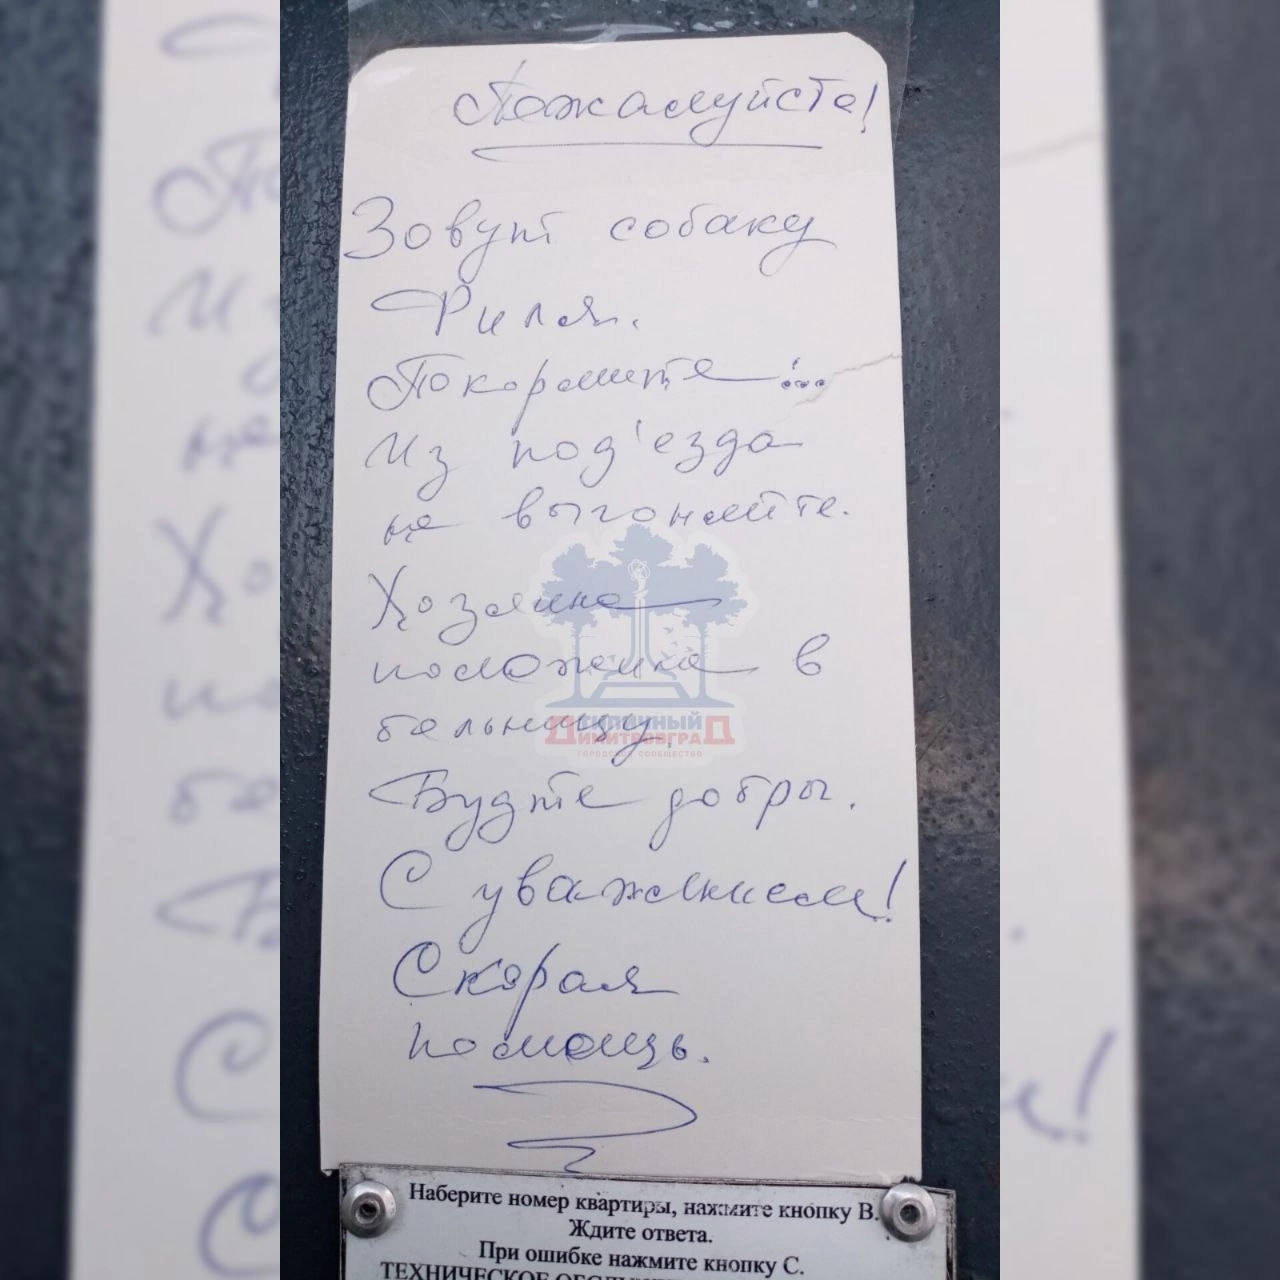 Пожалуйста!
Зовут собаку
Филя.
Покормите...
Из под'езда
не выгоняйте.
Хозяина
положили в
больницу.
Будте добры.
С уважением!
Скорая
помощь.
ТИПИЧНЫЙ
ДИМИТРОВГРАД
ГОРОДСКОЕ СООБЩЕСТВО
Наберите номер квартиры, нажмите кнопку В.
Ждите ответа.
При ошибке нажмите кнопку С.
ТЕХНИЧЕСКОЕ